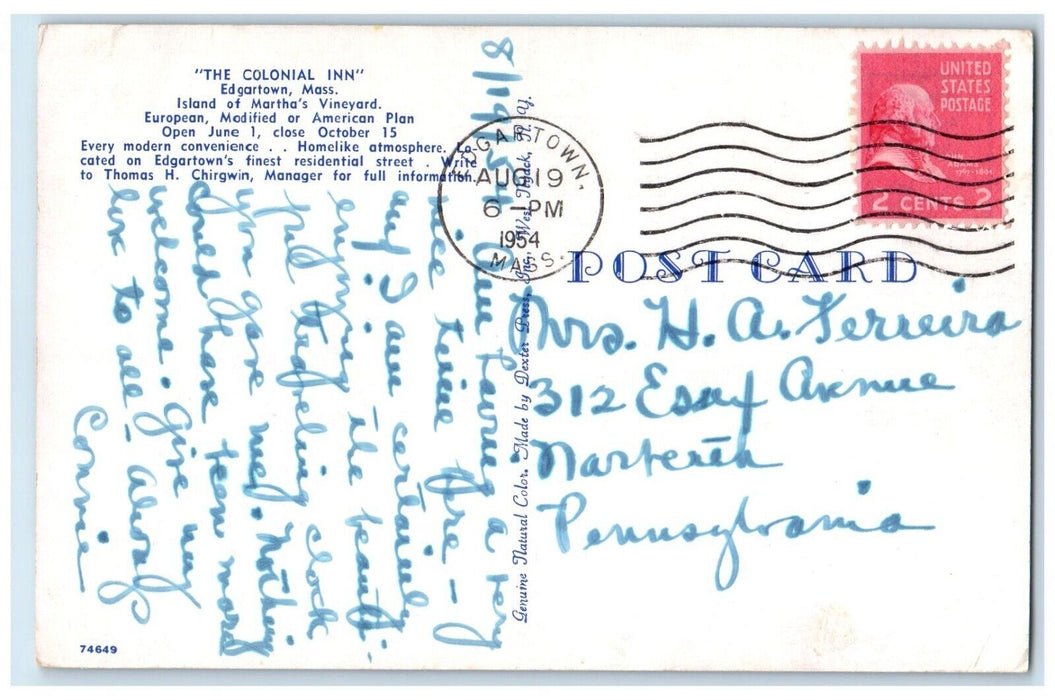 "THE COLONIAL INN"
Edgartown, Mass.
Island of Martha's Vineyard.
European, Modified or American Plan
Open June 1, close October 15
Every modern convenience . . Homelike atmosphere. Lo-
cated on Edgartown's finest residential street . Write
to Thomas H. Chirgwin, Manager for full information.
8/19/54
Am having a very
nice time here –
and I am certainly
enjoying the beauti-
ful traveling clock
you gave me. Nothing
could have been more
welcome. Give my
love to all – always
Connie
74649
Genuine Natural Color. Made by Dexter Press, Inc., West Nyack, N. Y.
EDGARTOWN.
AUG 19
6 – PM
1954
MASS.
UNITED
STATES
POSTAGE
2 CENTS 2
POST CARD
Mrs. H. A. Ferreira
312 Essex Avenue
Narberth
Pennsylvania